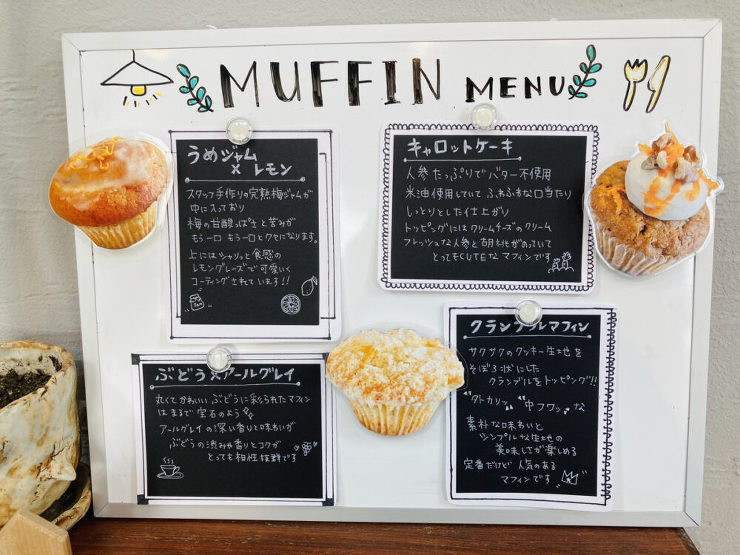 MUFFIN MENU
うめジャム
×レモン
スタッフ手作りの完熟梅ジャムが
中に入っており
梅の甘酸っぱさと苦みが
もう一口 もう一口とクセになります。
上にはシャリッと食感の
レモングレーズで可愛いく
コーティングされています!!
キャロットケーキ
人参たっぷりでバター不使用
米油使用していて ふわふわな口当たり
しっとりとした仕上がり
トッピングにはクリームチーズのクリーム
フレッシュな人参と胡桃がのっていて
とってもCUTEなマフィンです
ぶどう×アールグレイ
丸くてかわいい ぶどうに彩られたマフィン
はまるで宝石のよう
アールグレイの深い香りと味わいが
ぶどうの渋みや香りとコクが
とっても相性抜群です
クランブルマフィン
サクサクのクッキー生地を
そぼろ状にした
クランブルをトッピング!!
"外カリッ" "中フワッ"な
素朴な味わいと
シンプルな生地の
美味しさが楽しめる
定番だけど 人気のある
マフィンです